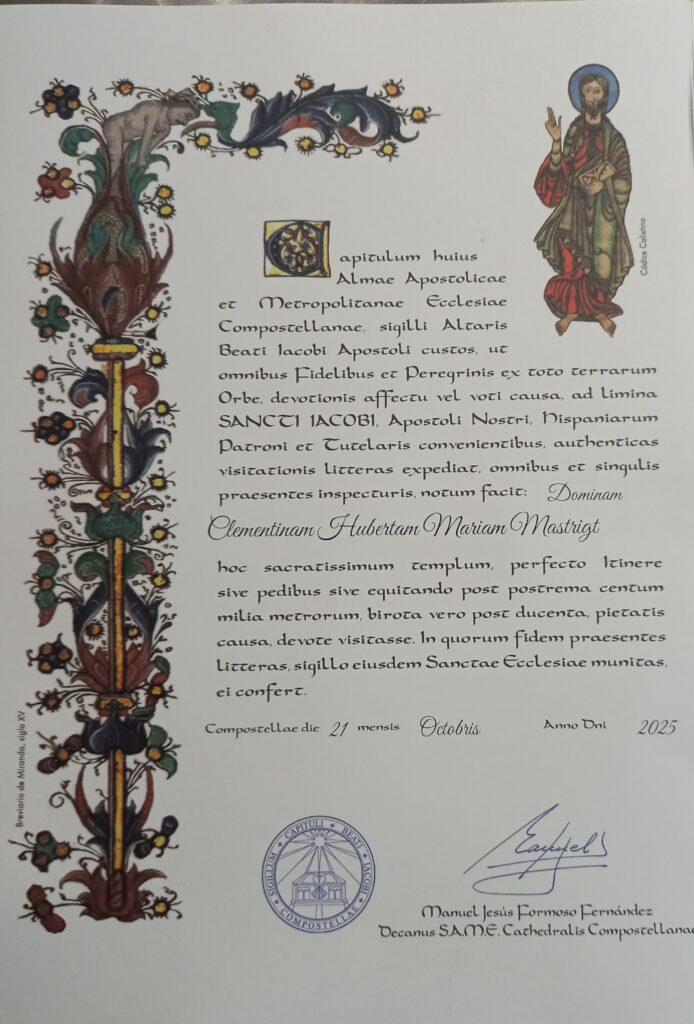 Capitulum huius
Almae Apostolicae
et Metropolitanae Ecclesiae
Compostellanae, sigilli Altaris
Beati Iacobi Apostoli custos, ut
omnibus Fidelibus et Peregrinis ex toto terrarum
Orbe, devotionis affectu vel voti causa, ad limina
SANCTI IACOBI, Apostoli Nostri, Hispaniarum
Patroni et Tutelaris convenientibus, authenticas
visitationis litteras expediat, omnibus et singulis
praesentes inspecturis, notum facit: Dominam
Clementinam Hubertam Mariam Mastrigt
hoc sacratissimum templum, perfecto Itinere
sive pedibus sive equitando post postrema centum
milia metrorum, birota vero post ducenta, pietatis
causa, devote visitasse. In quorum fidem praesentes
litteras, sigillo eiusdem Sanctae Ecclesiae munitas,
ei confert.
Compostellae die 21 mensis Octobris Anno Dni 2025
Códice Calixtino
Breviario de Miranda, siglo XV
SIGILLUM CAPITULI BEATI IACOBI
COMPOSTELLAE
Manuel Jesús Formoso Fernández
Decanus S.A.M.E. Cathedralis Compostellanae